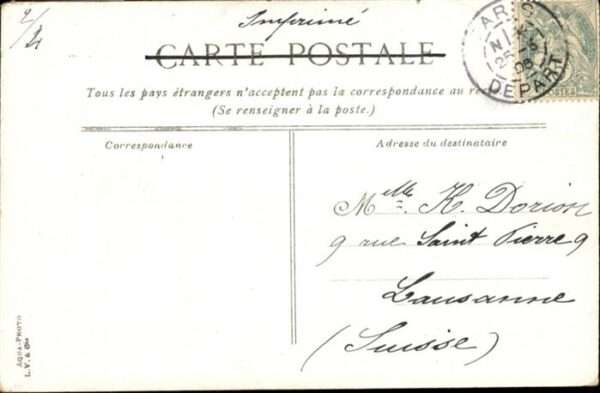 2/21
Imprimé
CARTE POSTALE
Tous les pays étrangers n'acceptent pas la correspondance au
(Se renseigner à la poste.)
Correspondance
Adresse du destinataire
Mlle. K. Dorion
9 rue Saint Pierre 9
Lausanne
(Suisse)
DEPART
AQUA-PHOTO
L. V. & Cie